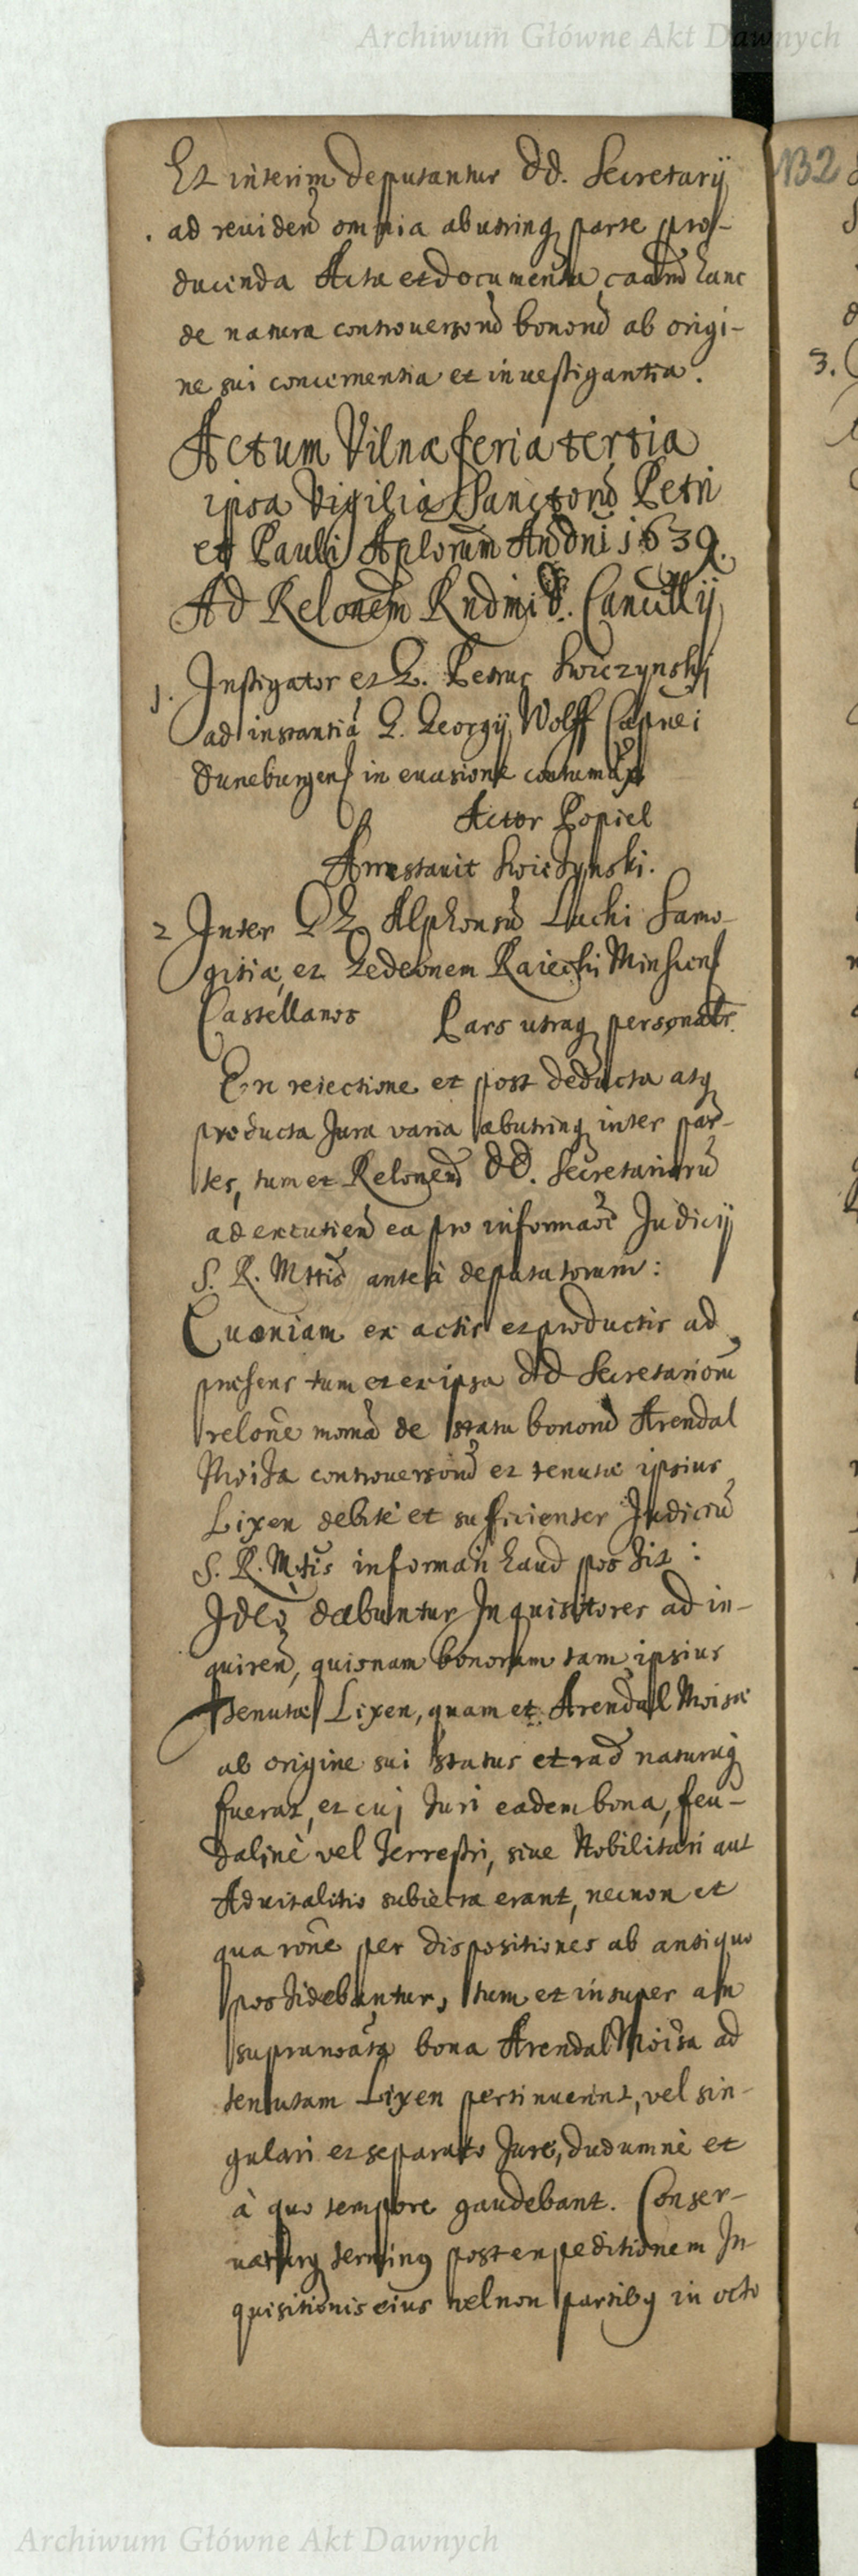 Archiwum Główne Akt Dawnych
Et interim deputantur dd. Secretarij
132
ad reuidend omnia abutrinq parte pro-
ducenda Acta et documenta, caam hanc
de natura controuersor bonor ab origi-
ne sui concernentia et inuestigantia.
3.
Actum Vilnæ feria tertia
ipsa Vigilia Sanctor Petri
et Pauli Aplorum An Dni 1639.
Ad Relonem Rndmi d. Cancellrij
1. Instigator et G. Petrus Swiczynskj
ad instantiã G. Georgij Wolff Capnei
Duneburgens in euasione contumax
Actor Popiel
Arrestauit Swiczynski.
2 Inter GG Alphonsũ Lacki Samo-
gitiæ, et Gedeonem Raiecki Minscens
Castellanos Pars utraq personatr.
En reiectione et post deducta atq
producta Jura varia abutrinq inter par-
tes, tum et Relonem dd. Secretariorũ
ad excutiend ea pro informaõe Judicij
S. R. Mttis anteà deputatorum:
Quoniam ex actis et productis ad
præsens tum et ex ipsa dd Secretariorũ
relone de statu bonor Arendal
Moiza controuersor et tenutæ ipsius
Lixen debitè et sufficienter Judiciũ
S. R. Mtis informari haud possit:
Ideò dabuntur Inquisitores ad in-
quirend, quisnam bonorum tam ipsius
tenutæ Lixen, quam et Arendal Moisæ
ab origine sui status et naturæq
fuerat, et cuj Juri eadem bona, feu-
daline vel Terrestri, siue Nobilitari aut
Aduitalitio subiecta erant, necnon et
qua rone per dispositiones ab antiquo
possidebantur, tum et insuper an
supranoata bona Arendal Moisa ad
tenutam Lixen pertinuerint, vel sin-
gulari et separato Jure, dudumnè et
à quo tempore gaudebant. Conser-
uaturq terminq post expeditionem In-
quisitionis eius partibq in octo
Archiwum Główne Akt Dawnych